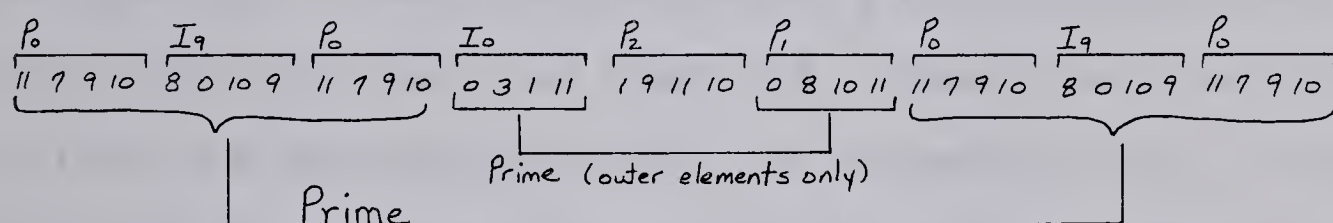 P0 I9 P0 I0 P2 P1 P0 I9 P0
11 7 9 10 8 0 10 9 11 7 9 10 0 3 1 11 1 9 11 10 0 8 10 11 11 7 9 10 8 0 10 9 11 7 9 10
Prime (outer elements only)
Prime